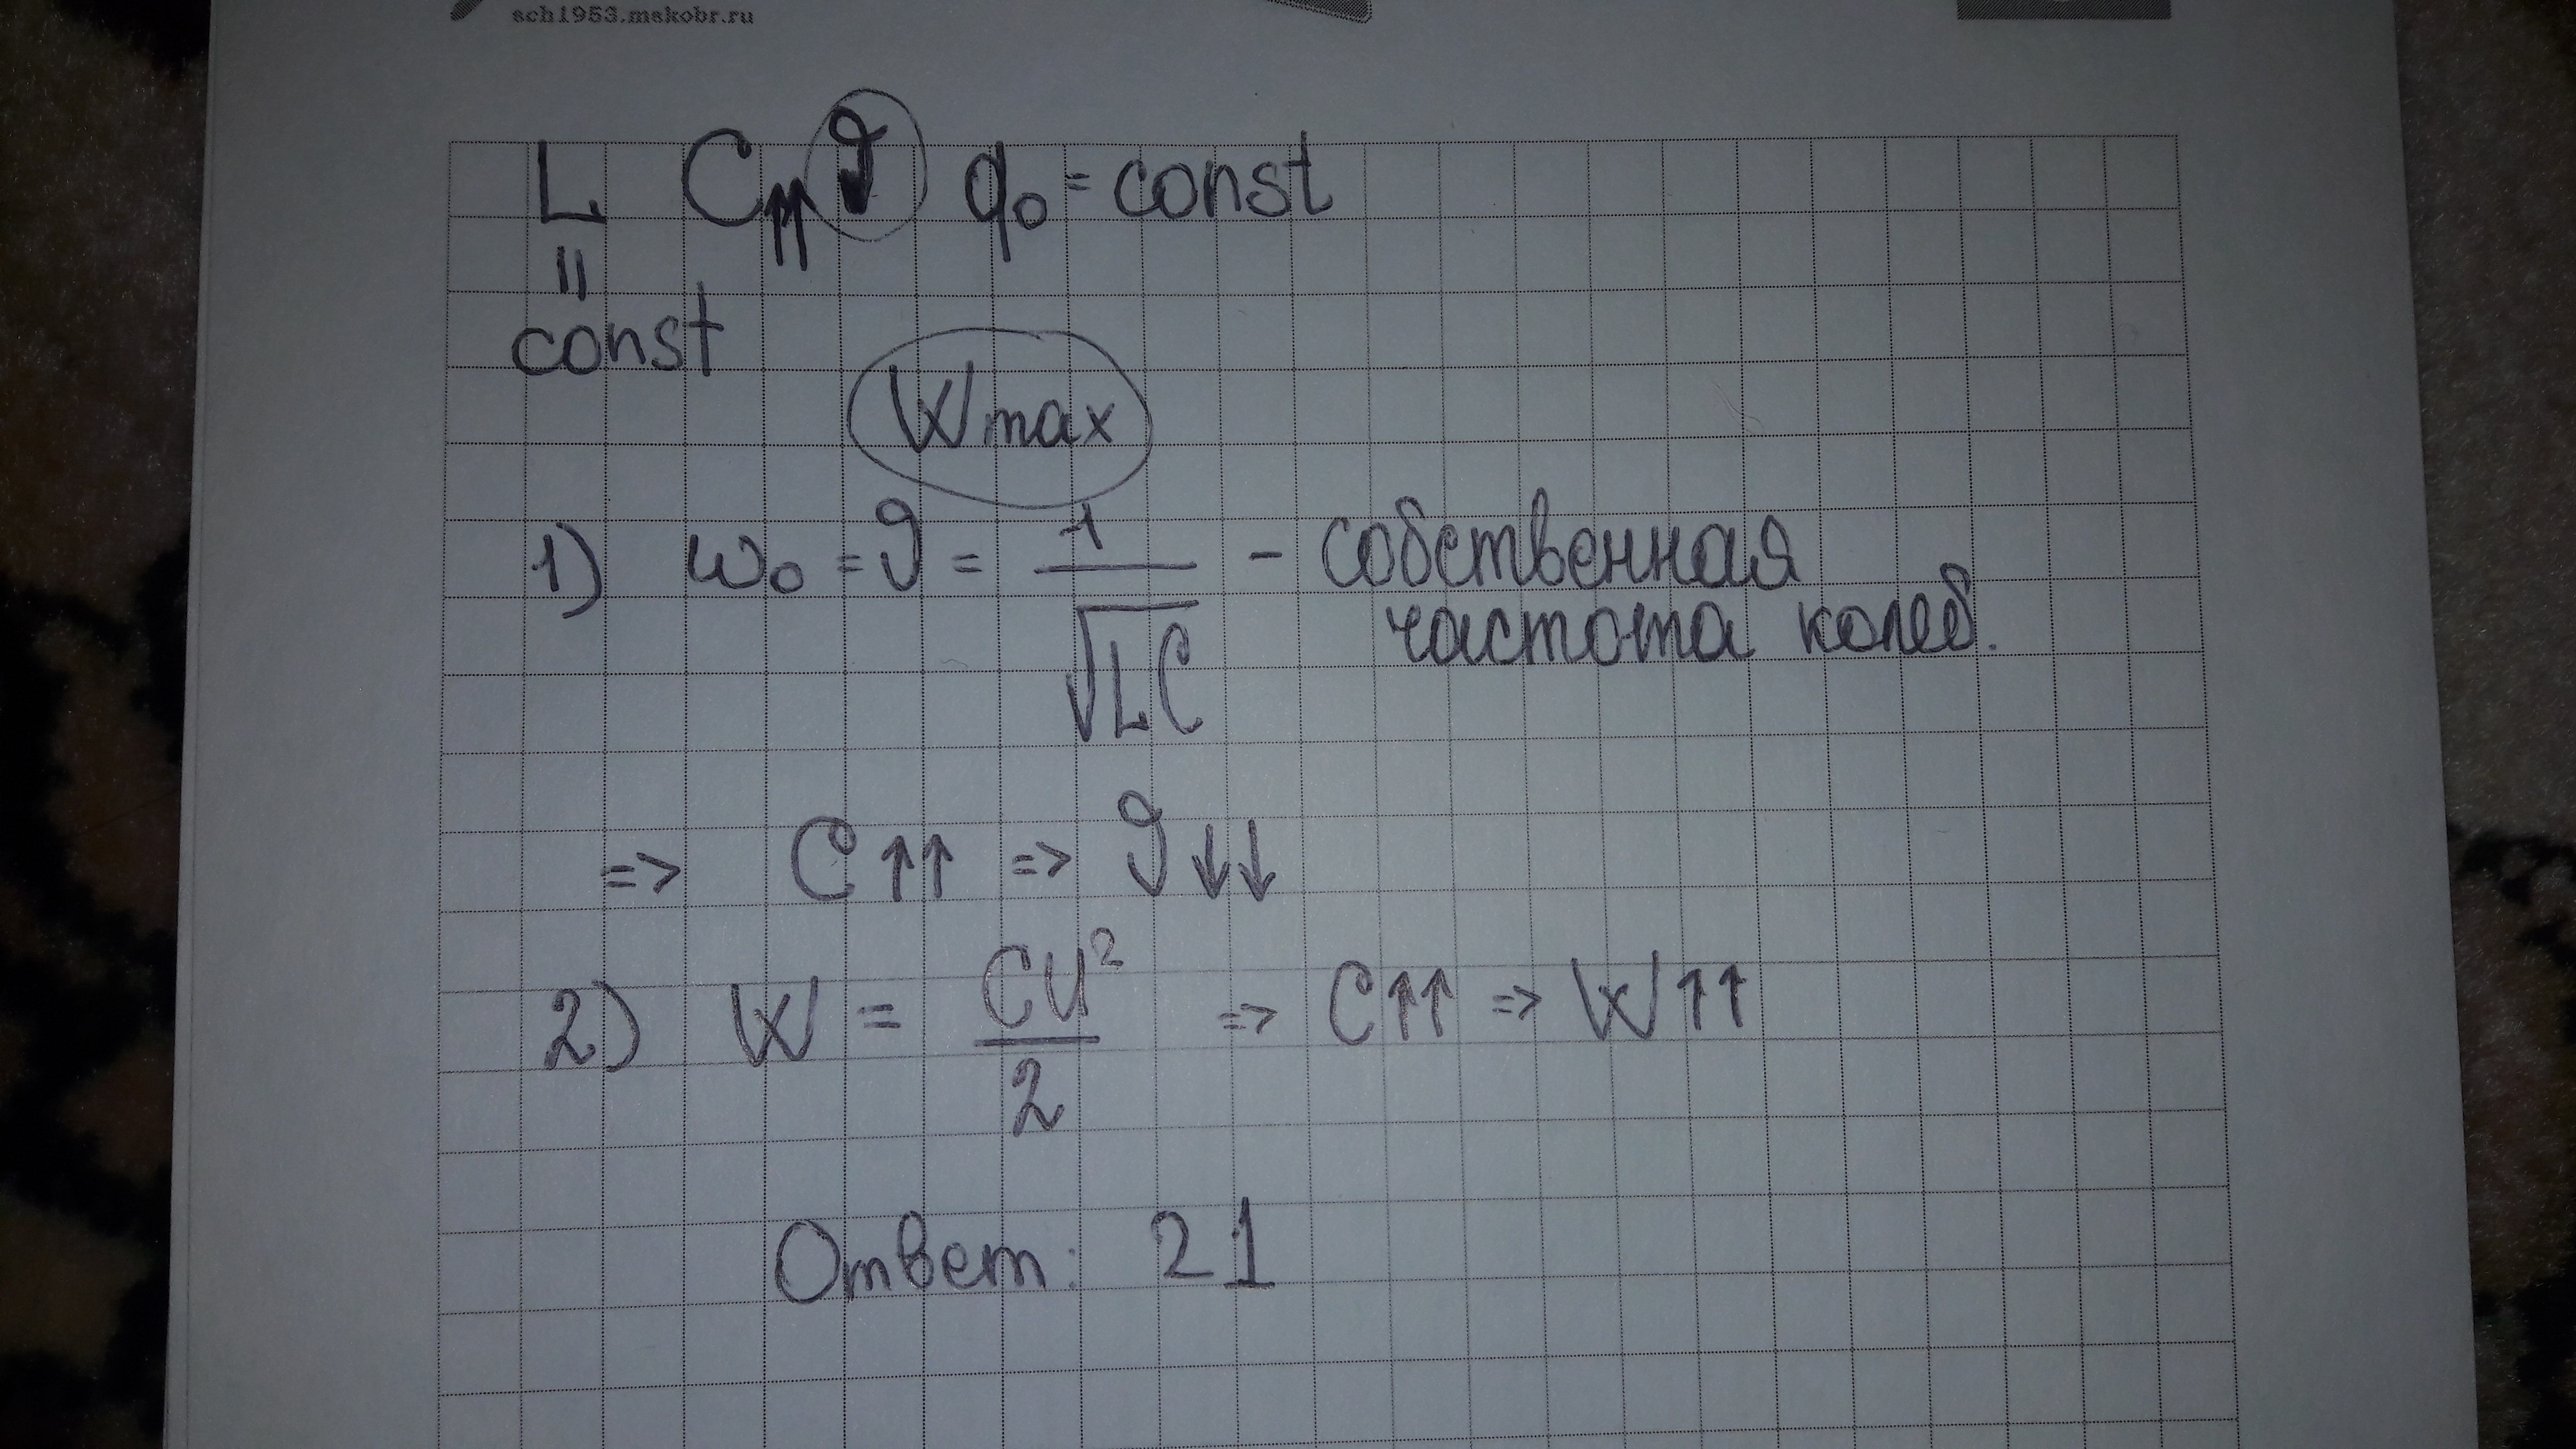 sch1953.mskobr.ru
L C↑↑ ϑ q₀ = const
||
const
Wmax
1) ω₀ = ϑ = 1/√LC - собственная
частота колеб.
=> C↑↑ => ϑ↓↓
2) W = CU²/2 => C↑↑ => W↑↑
Ответ: 21